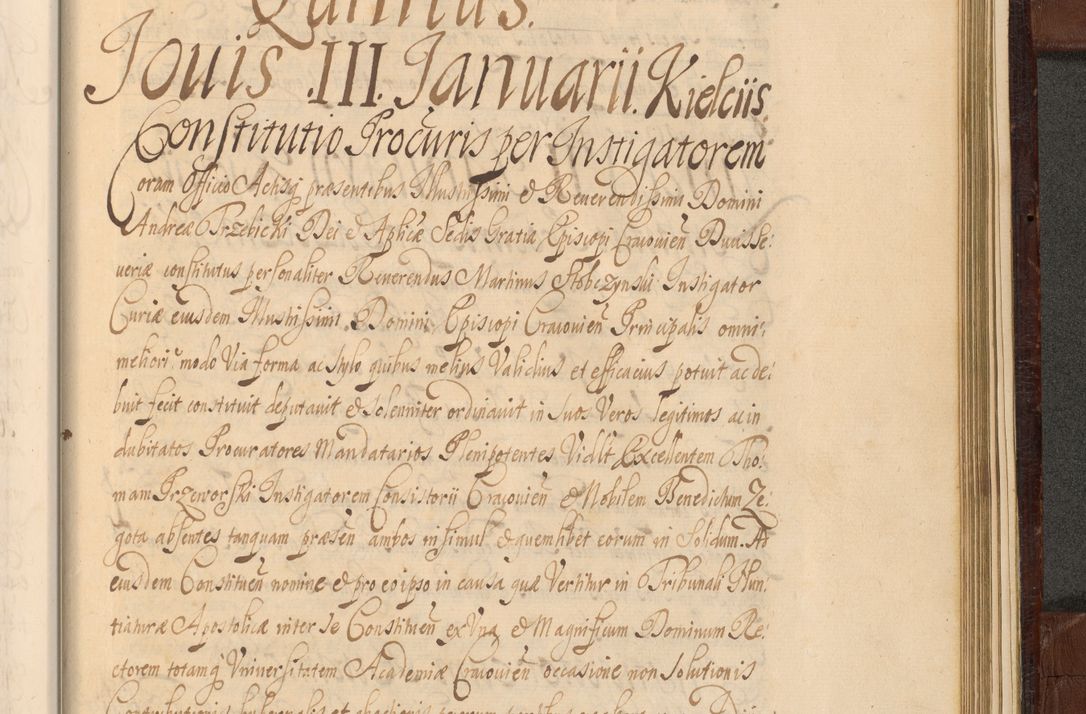 Quintus.
Jouis .III. Januarii. Kielciis
Constitutio Procuris per Instigatorem
coram Officio Actisq præsentibus Illustrissimi & Reuerendissimi Domini
Andreæ Trzebicki Dei & Aplicæ Sedis Gratia Episcopi Cracouien Ducis Se:
ueriæ constitutus personaliter Reuerendus Martinus Stobczynski Instigator
Curiæ eiusdem Illustrissimi Domini Episcopi Cracouien Principalis omni:
meliori modo Via forma ac stylo quibus melius Validius et efficacius potuit ac de:
buit fecit constituit deputauit & solenniter ordinauit in suos Veros legitimos ac in
dubitatos Procuratores Mandatarios Plenipotentes Vidlt Excellentem Tho:
mam Przeworski Instigatorem Consistorii Cracouien & Nobilem Benedictum Ze:
gota absentes tanquam præsen ambos in simul & quemlibet eorum in Solidum. Ad
eiusdem Constituen nomine & pro eo ipso in causa quæ Vertitur in Tribunali Nun:
tiaturæ Apostolicæ inter se Constituen ex Vna & Magnificum Dominum Re:
ctorem totamq Vniuersitatem Academiæ Cracouien occasione non Solutionis